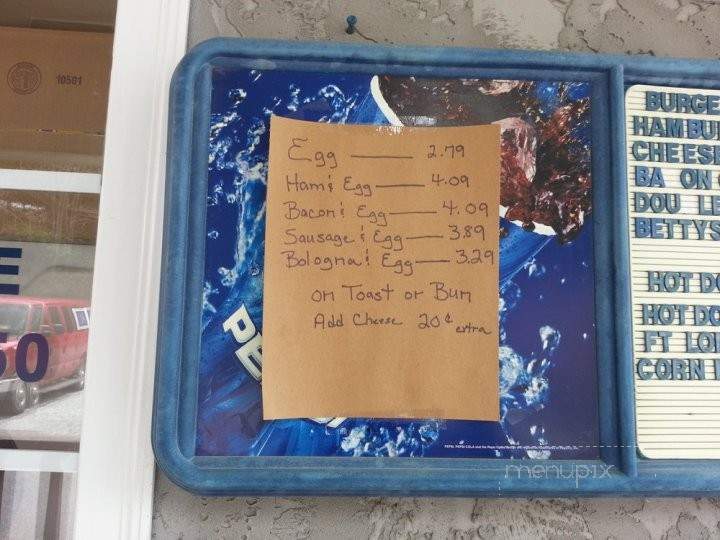 10581
Egg — 2.79
Ham & Egg — 4.09
Bacon & Egg — 4.09
Sausage & Egg — 3.89
Bologna & Egg — 3.29
on Toast or Bun
Add Cheese 20¢ extra
PE
BURGE
HAMBU
CHEES
BA ON
DOU LE
BETTYS
HOT DO
HOT DO
FT LO
CORN
50
menupix